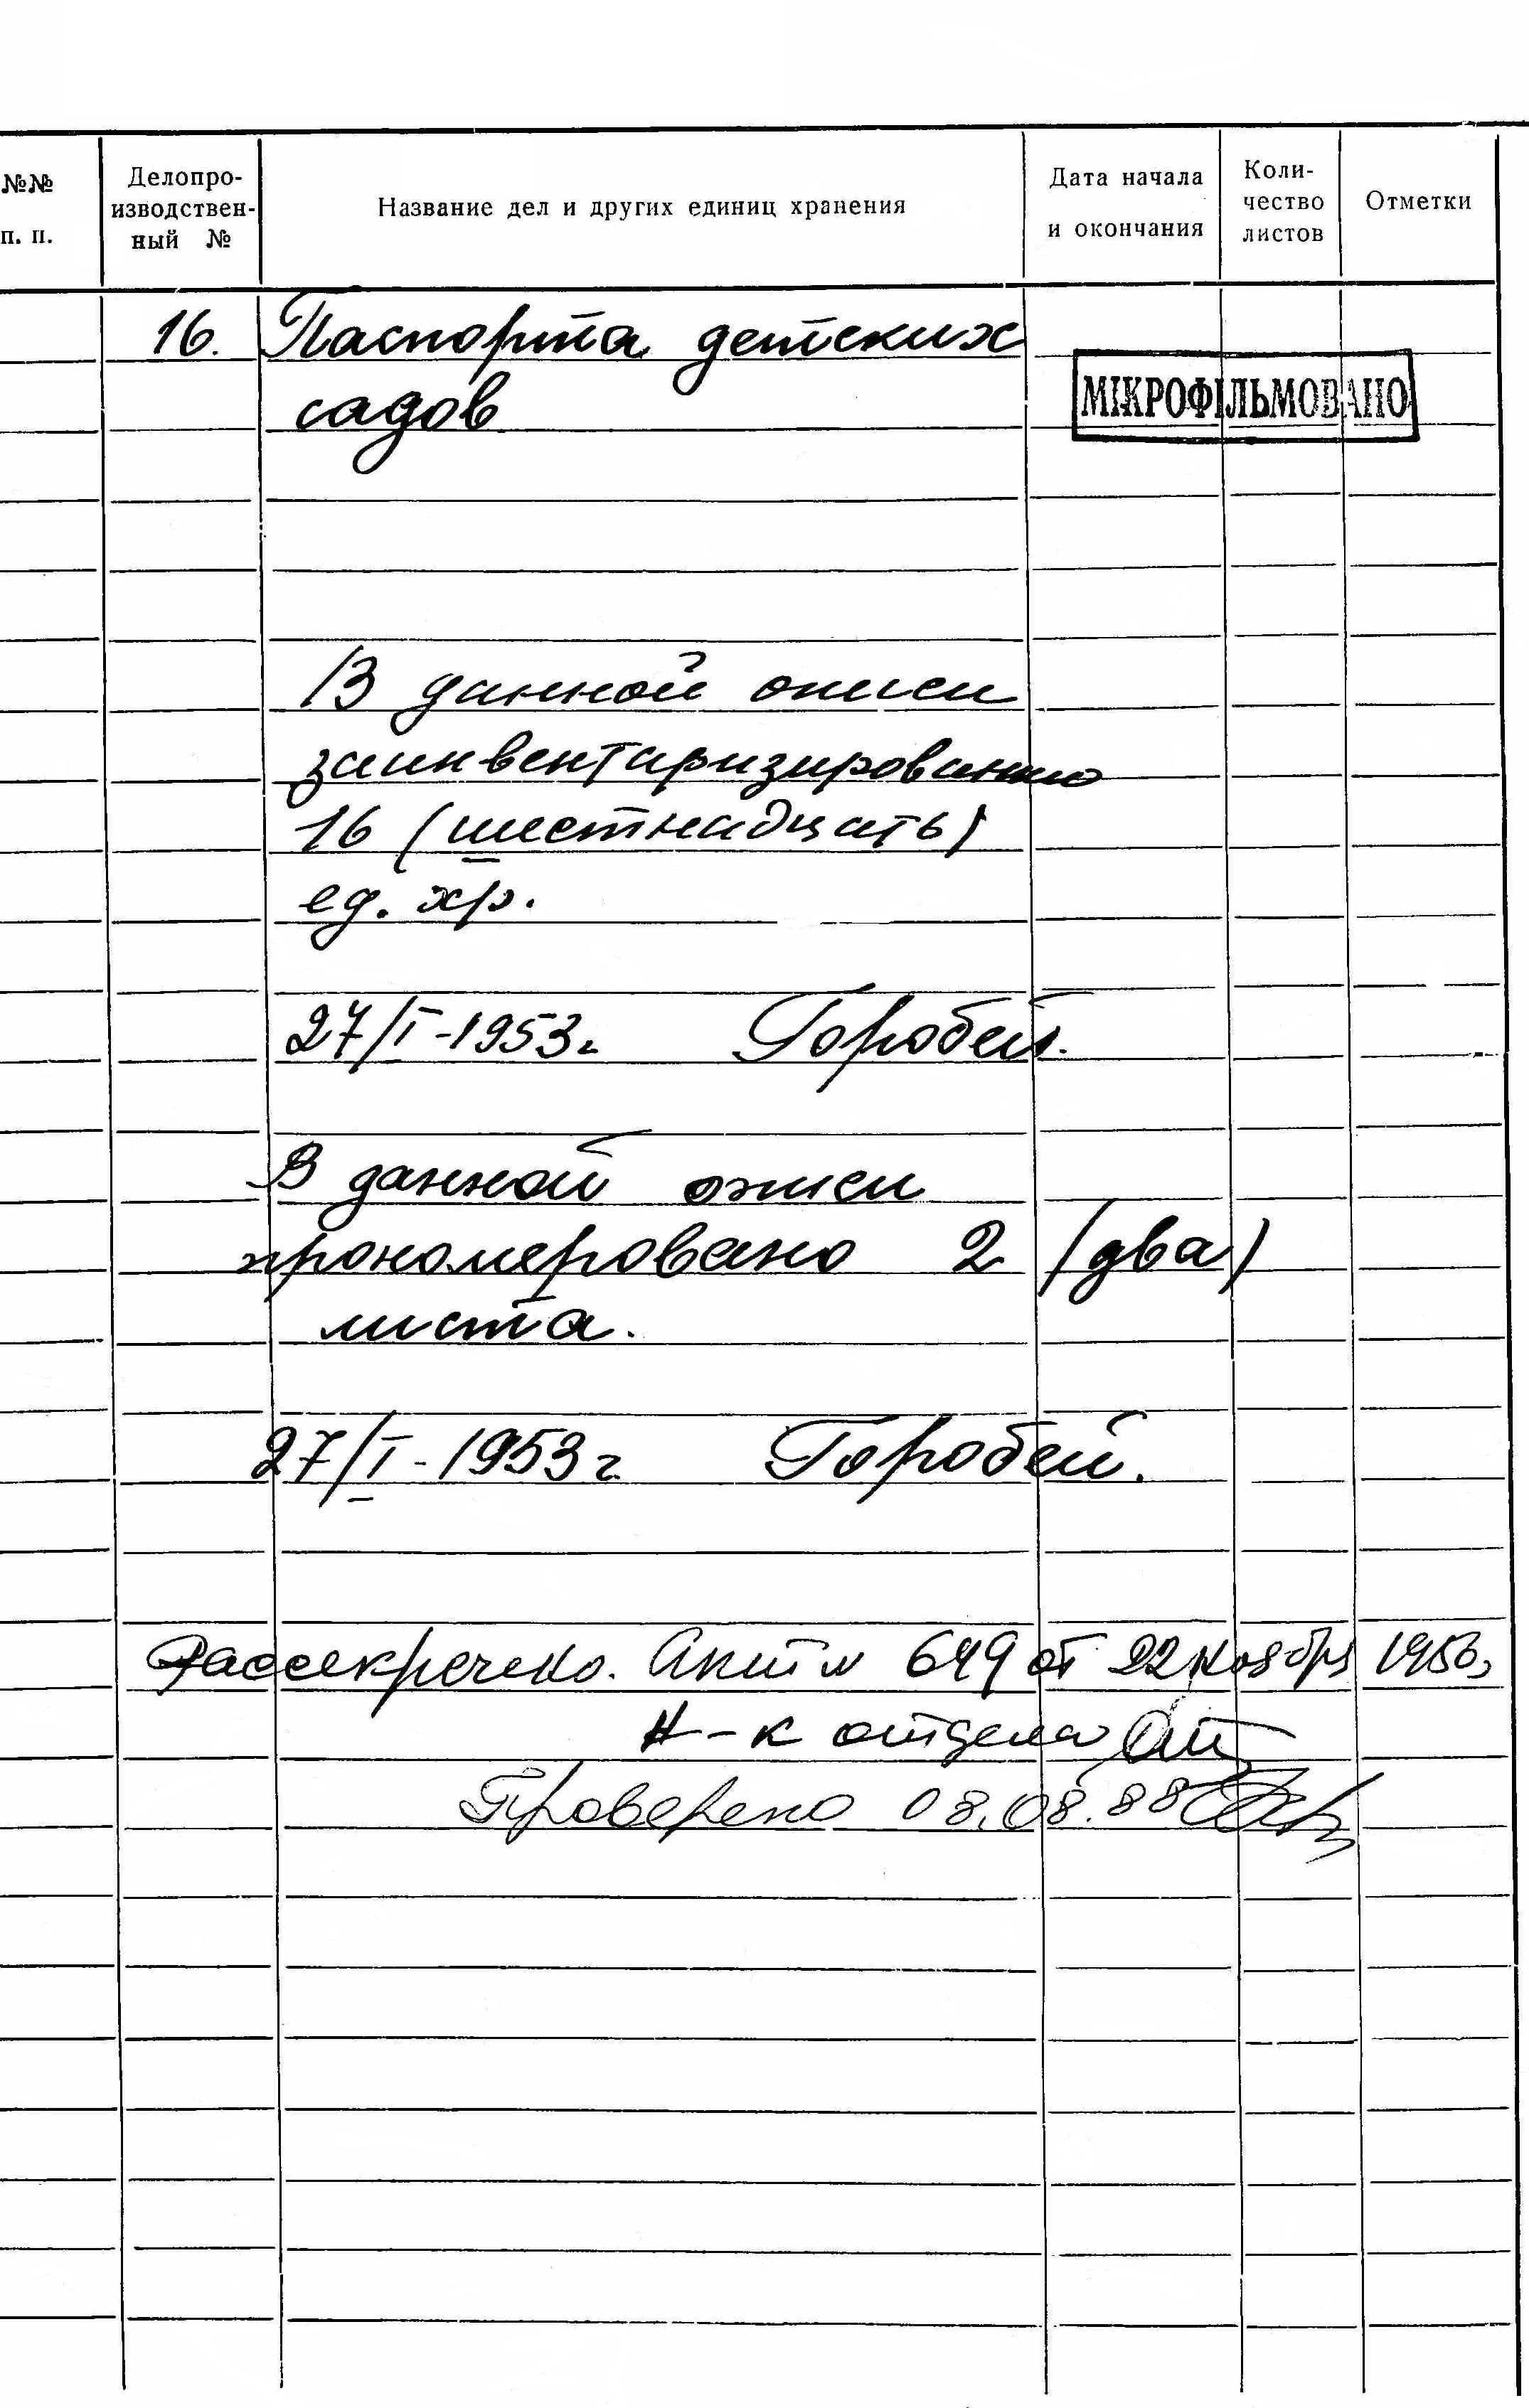 №№ п. п.
Делопро-
изводствен-
ный №
Название дел и других единиц хранения
Дата начала
и окончания
Коли-
чество
листов
Отметки
16. Паспорта детских
садов
МІКРОФІЛЬМОВАНО
В данной описи
заинвентаризировано
16 (шестнадцать)
ед. хр.
27/I-1953г. Горобей.
В данной описи
прономеровано 2 (два)
листа.
27/I-1953г Горобей.
Рассекречено. Акт № 649 от 22 ноября 1956,
Н-к отдела
Проверено 08.08.88